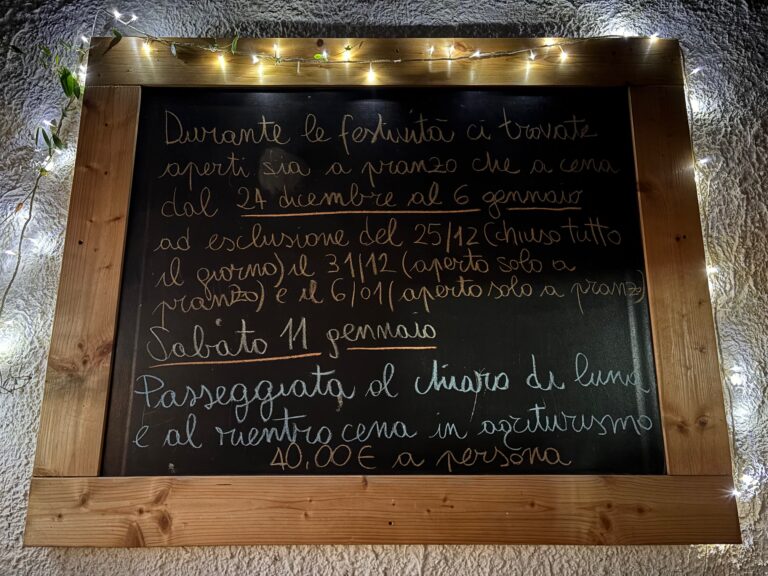 Durante le festività ci trovate
aperti sia a pranzo che a cena
dal 24 dicembre al 6 gennaio
ad esclusione del 25/12 (chiuso tutto
il giorno) il 31/12 (aperto solo a
pranzo) e il 6/01 (aperto solo a pranzo)
Sabato 11 gennaio
Passeggiata al chiaro di luna
e al rientro cena in agriturismo
40,00 € a persona